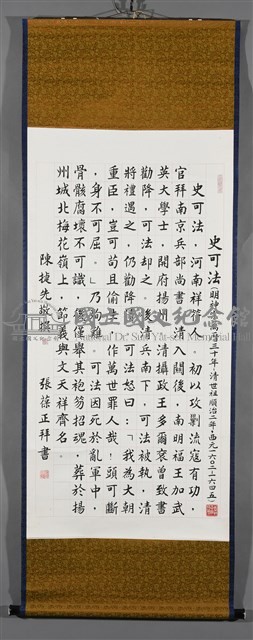 史可法 明神宗萬曆三十年-清世祖順治二年 西元一六〇二-一六四五
史可法，河南祥符人。初以攻剿流寇有功，
官拜南京兵部尚書。清入關後，南明福王加武
英大學士，開府揚州。清攝政王多爾袞曾致書
勸降，可法卻之。後清兵南下，可法被執，清
將禮遇之，仍勸降。可法怒曰：「我為大朝
重臣，豈可苟且偷生，作萬世罪人哉！頭可斷
，身不可屈。」乃遇難。可法因死於亂軍中，
骨骸腐壞不可識，僅舉其袍笏招魂，葬於揚
州城北梅花嶺上，節義與文天祥齊名。
陳捷先敬撰 張葆正拜書
國立國父紀念館
National Dr. Sun Yat-sen Memorial Hall